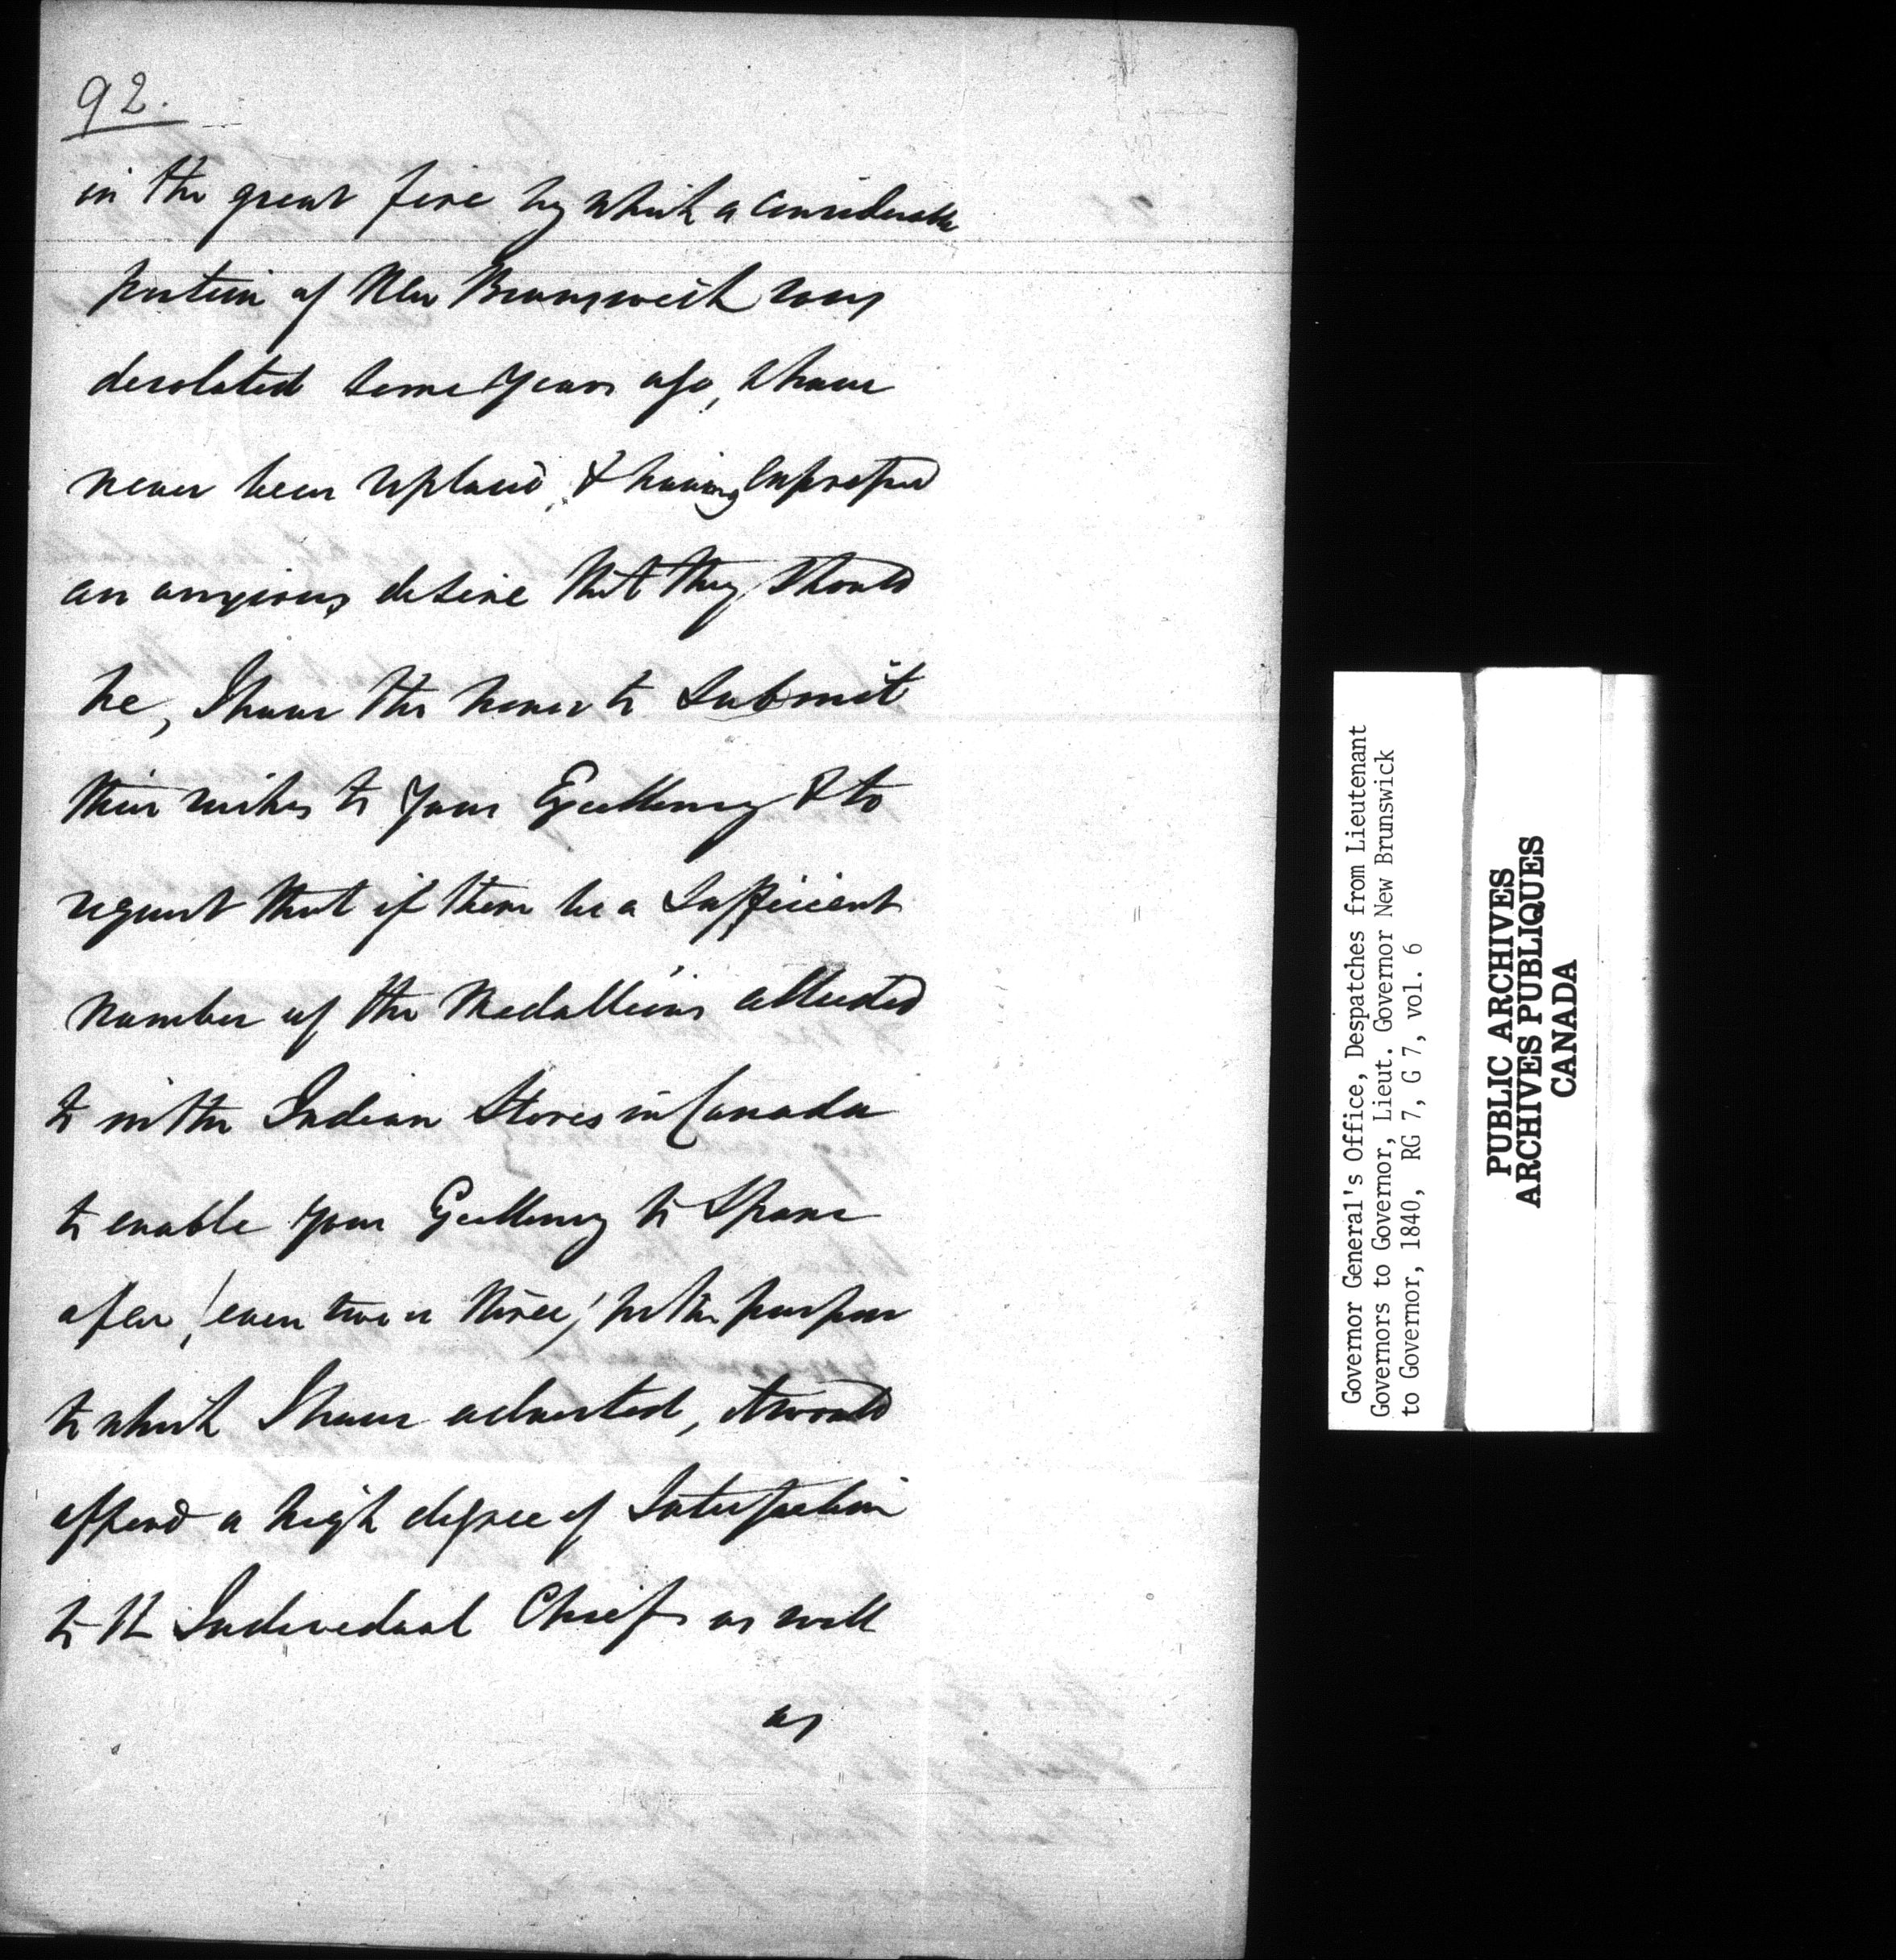 92.
in the great fire by which a considerable
portion of New Brunswick was
desolated some years ago, & have
never been replaced, & having expressed
an anxious desire that they should
be, I have the honor to submit
their wishes to Your Excellency & to
request that if there be a sufficient
number of the Medallions alluded
to in the Indian Stores in Canada
to enable your Excellency to spare
a few, (even two or three) for the purpose
to which I have adverted, it would
afford a high degree of satisfaction
to the Individual Chiefs as well
as
Governor General's Office, Despatches from Lieutenant
Governors to Governor, Lieut. Governor New Brunswick
to Governor, 1840, RG 7, G 7, vol. 6
PUBLIC ARCHIVES
ARCHIVES PUBLIQUES
CANADA